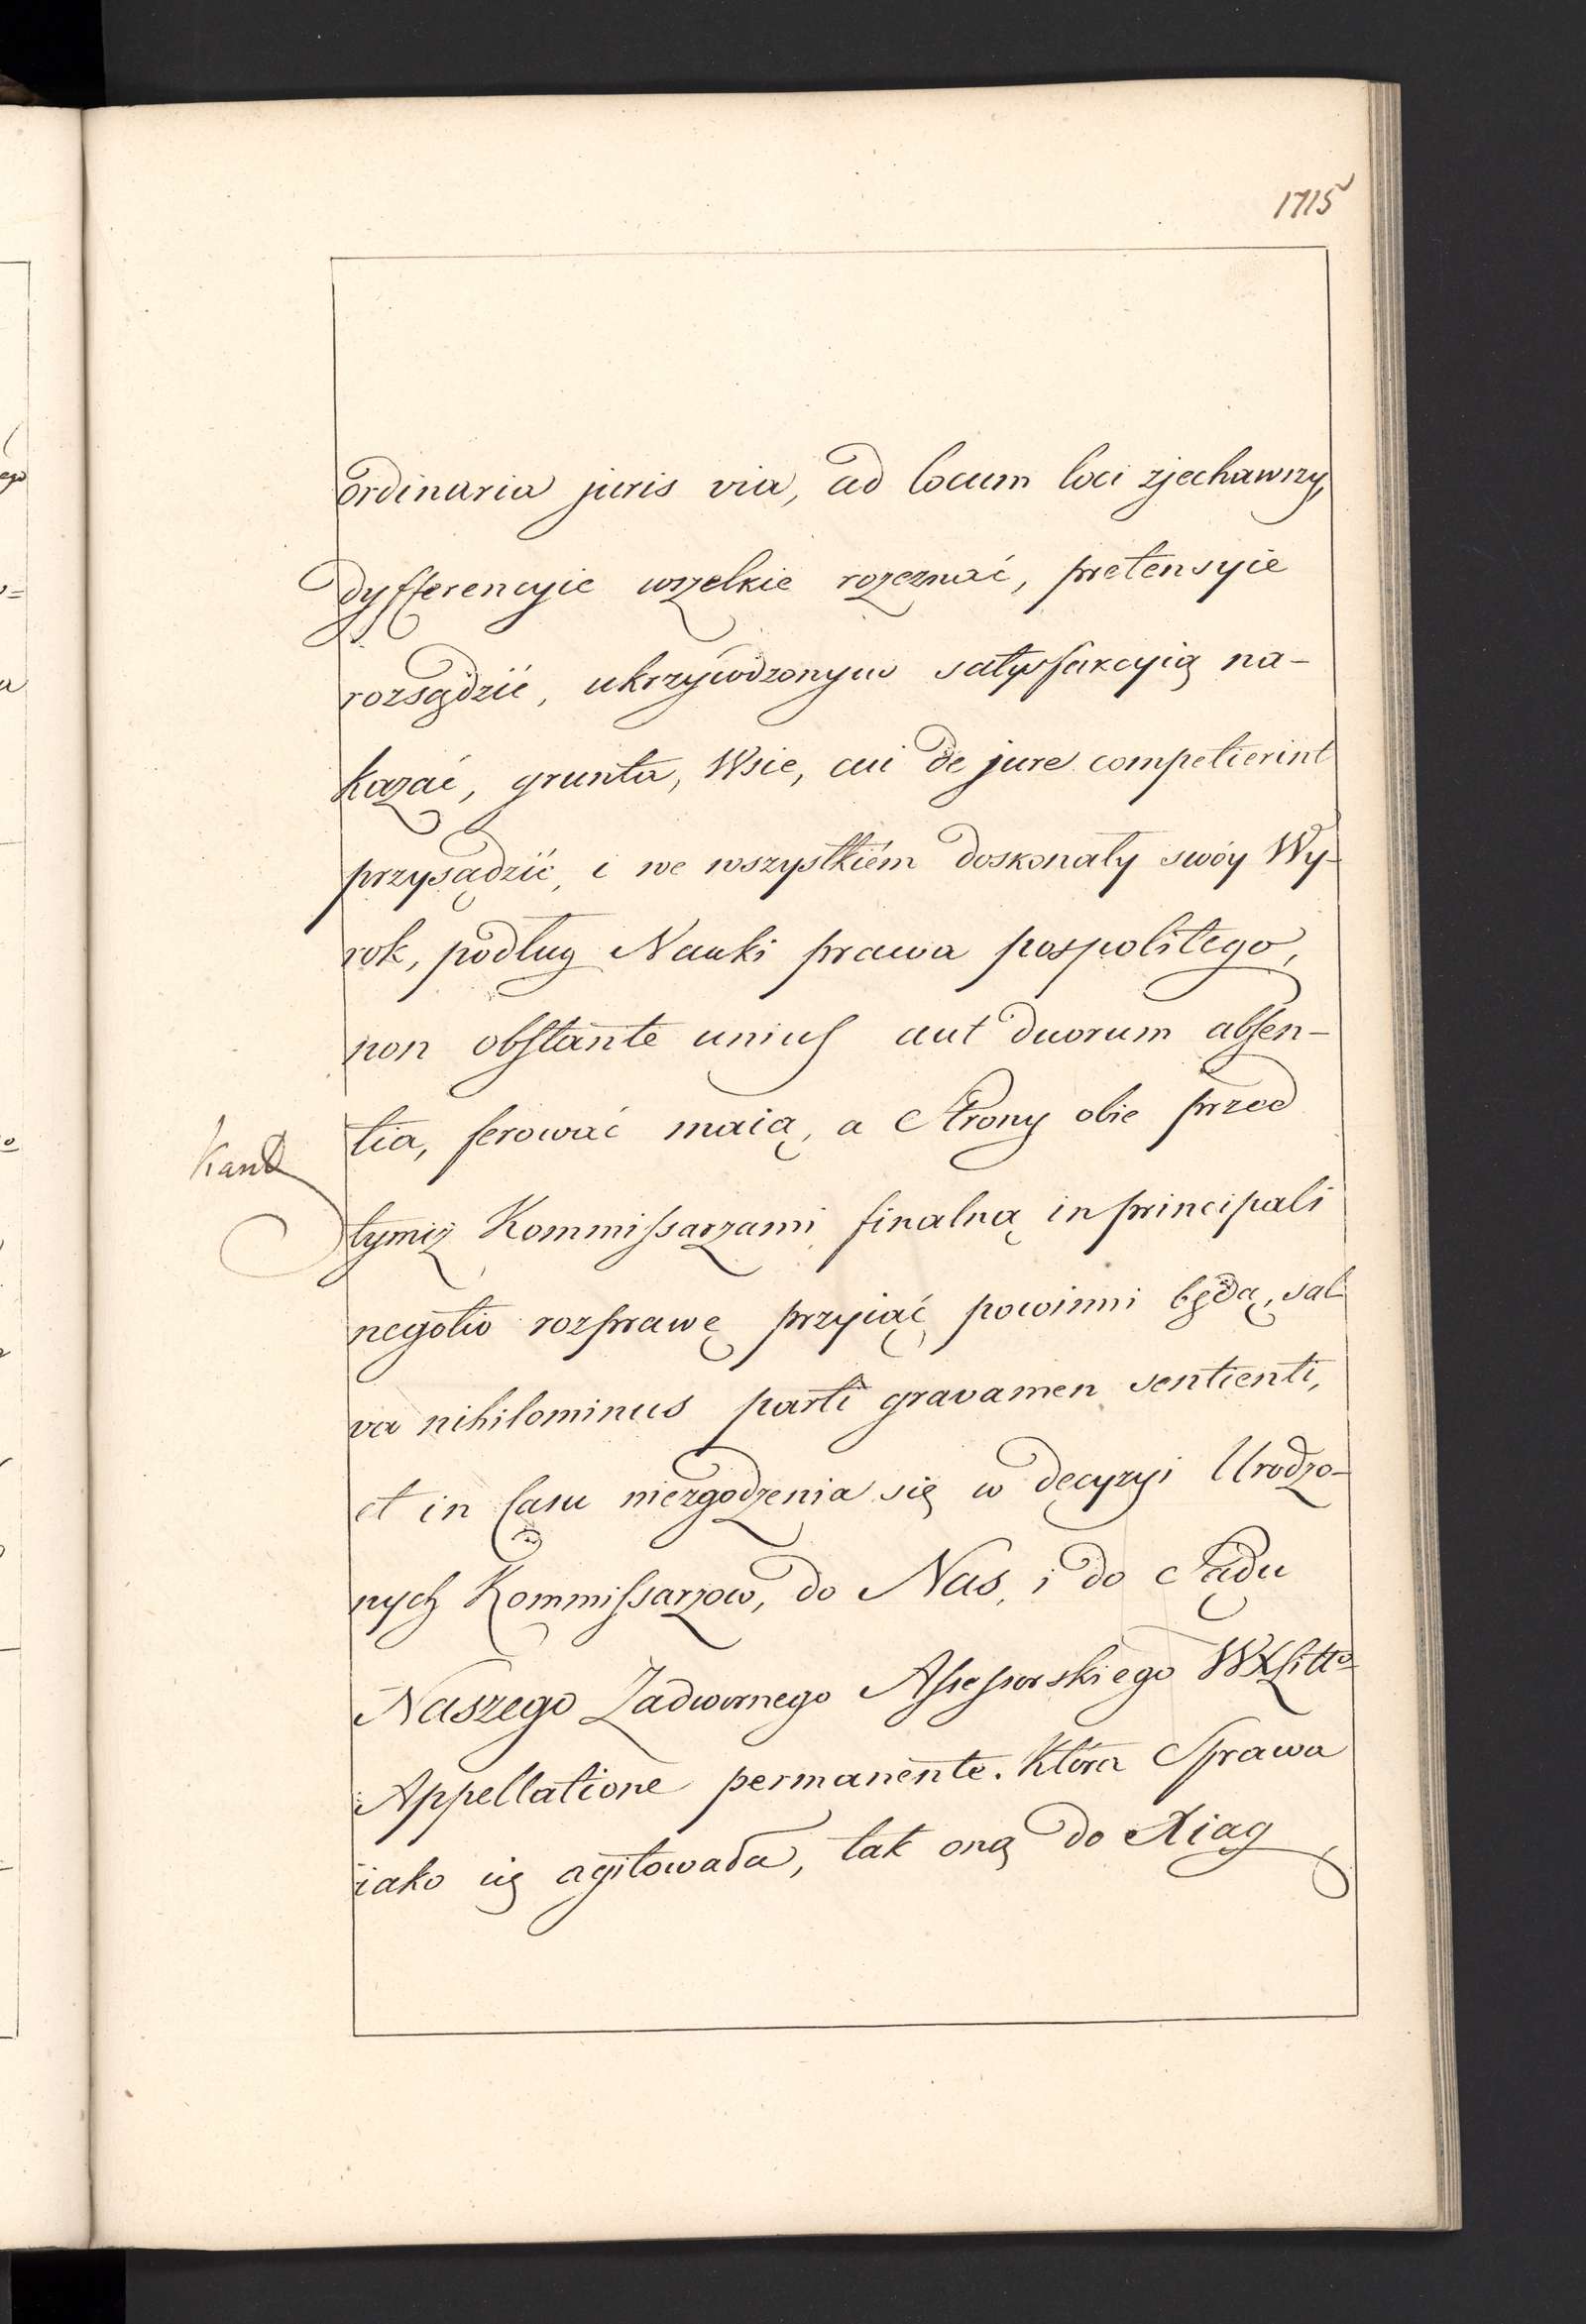 1715
ordinaria juris via, ad locum loci zjechawszy,
dyfferencyie wszelkie rozeznać, pretensyie
rozsądzić, ukrzywdzonym satysfakcyią na-
kazać, grunta, Wsie, cui de jure competierint
przysądzić, i we wszystkiém doskonały swóy Wy-
rok, podług Nauki prawa pospolitego,
non obstante unius aut duorum absen-
tia, ferować maią, a Strony obie przed
Kant
tymiż Kommissarzami finalną in principali
negotio rozprawę przyiąć powinni będą, sal-
va nihilominus parti gravamen sentienti,
et in Casu niezgodzenia się w decyzyi Urodzo-
nych Kommissarzow, do Nas, i do Sądu
Naszego Zadwornego Assessorskiego WXLitto
Appellatione permanente. Która Sprawa
iako się agitowała, tak oną do Xiąg